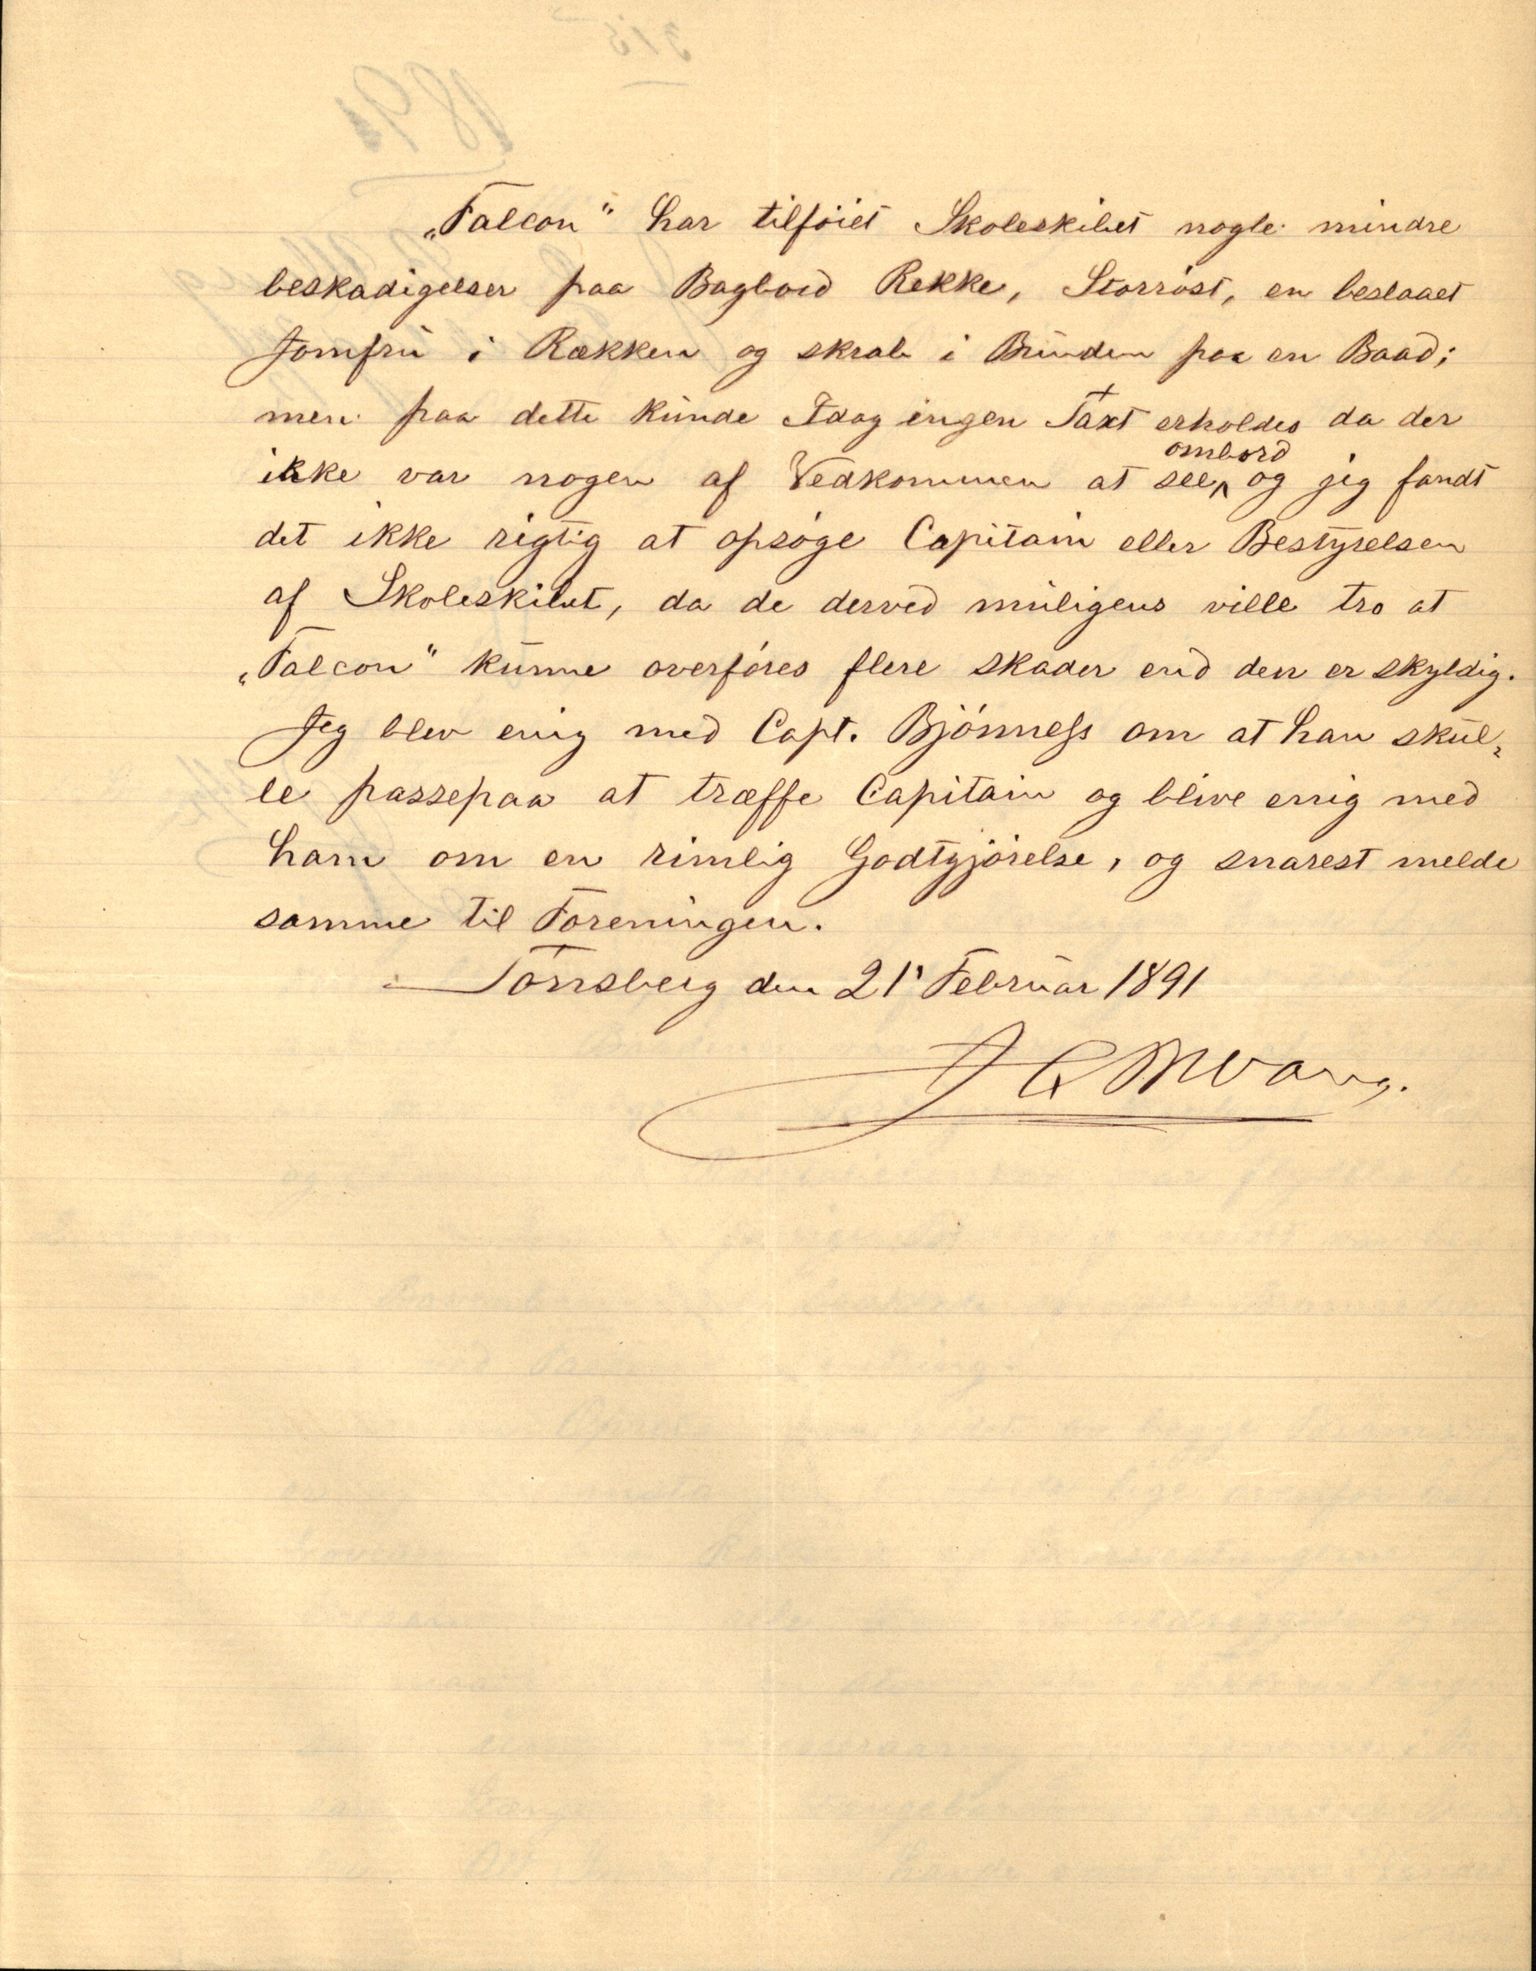 „Falcon" har tilföiet Skoleskibet nogle mindre
beskadigelser paa Bagbord Rekke, Storröst, en beslaaet
Jomfru i Rækken og skrab i Bunden paa en Baad;
men paa dette kunde Idag ingen Taxt erholdes da der
ikke var nogen af Vedkommen at see ombord og jeg fandt
det ikke rigtig at opsöge Capitain eller Bestyrelsen
af Skoleskibet, da de derved muligens ville tro at
„Falcon" kunne overföres flere skader end den er skyldig.
Jeg blev enig med Capt. Bjönness om at han skul-
le passepaa at træffe Capitain og blive enig med
ham om en rimlig Godtgjörelse, og snarest melde
samme til Foreningen.
Tönsberg den 21' Februar 1891